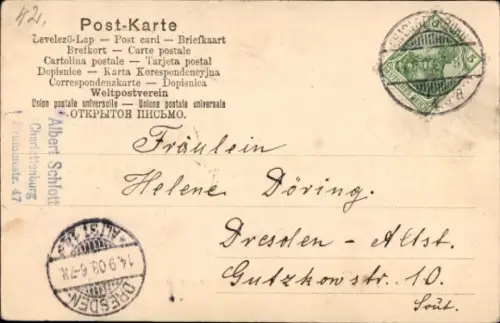 42.
Post-Karte
Levelező-Lap — Post card — Briefkaart
Brefkort — Carte postale
Cartolina postale — Tarjeta postal
Dopisnice — Karta Korespondencyjna
Correspondenzkarte — Dopisnica
Weltpostverein
Union postale universelle — Unione postale universale
ОТКРЫТОЕ ПИСЬМО.
Albert Schlott
Charlottenburg
47
Fräulein
Helene Döring.
Dresden - Altst.
Gutzkowstr. 10.
Sout.
DRESDEN-
ALTST.
14.9.03.6-7N.
5